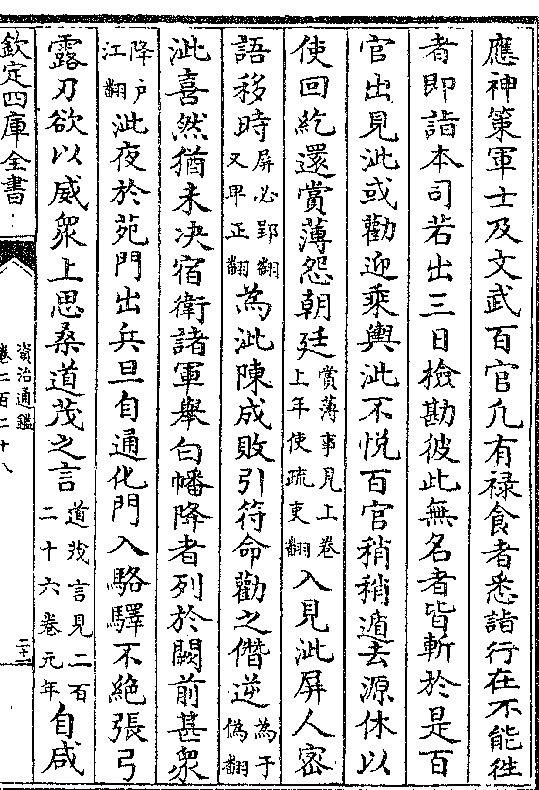 應神策軍士及文武百官凢有禄食者悉詣行在不能徃
者即詣本司若出三日檢勘彼此無名者皆斬於是百
官出見泚或勸迎乘輿泚不悦百官稍稍遁去源休以
使回紇還賞薄怨朝廷賞薄事見上卷上年使疏吏翻入見泚屏人密
語移時屏必郢翻又卑正翻為泚陳成敗引符命勸之僭逆為于偽翻
泚喜然猶未决宿衛諸軍舉白幡降者列於闕前甚衆
降户江翻泚夜於苑門出兵旦自通化門入駱驛不絶張弓
露刀欲以威衆上思桑道茂之言道茂言見二百二十六卷元年自咸
欽定四庫全書
資治通鑑
卷二百二十八